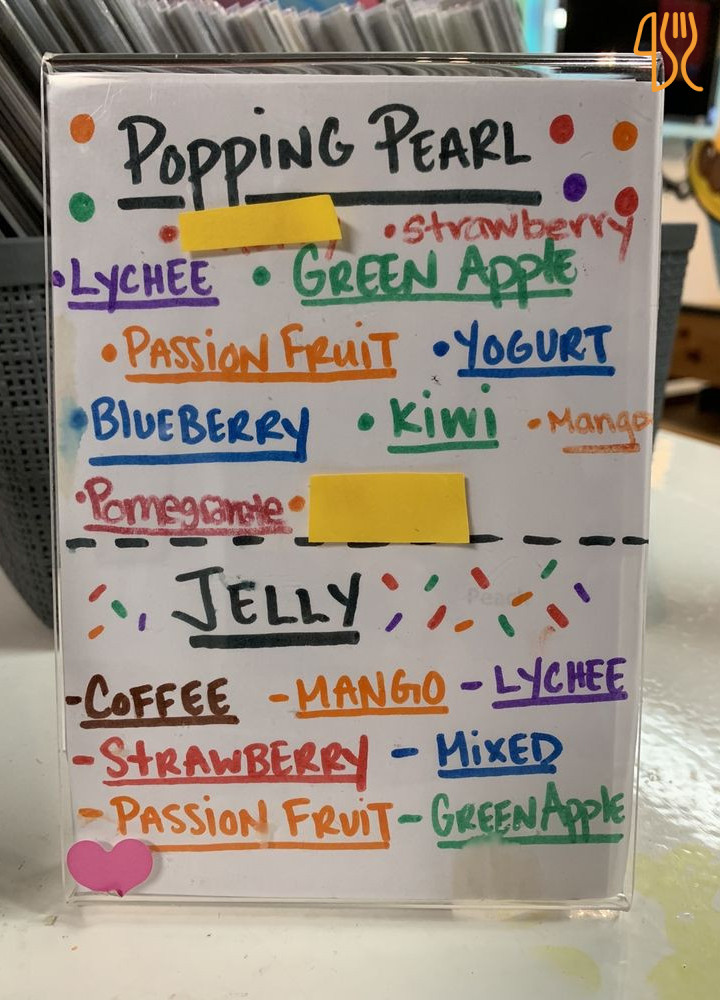 POPPING PEARL
• • strawberry
• LYCHEE • GREEN Apple
• PASSION FRUIT • YOGURT
• BLUEBERRY • KiWi • Mango
• Pomegranate •
JELLY
- COFFEE - MANGO - LYCHEE
- STRAWBERRY - MiXED
- PASSION FRUIT - GREEN Apple